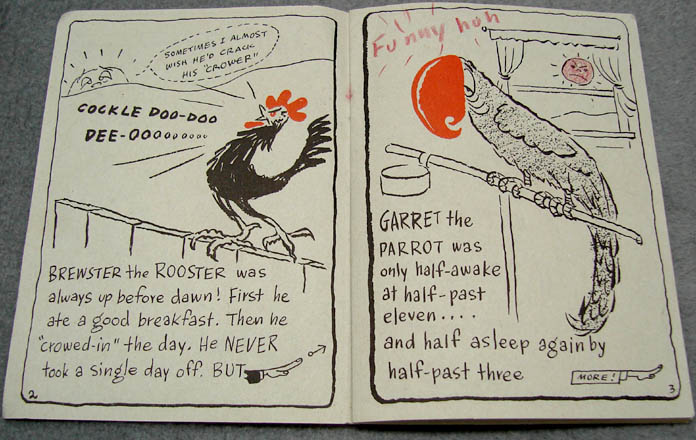 SOMETIMES I ALMOST
WISH HE'D CRACK
HIS "CROWER"!
COCKLE DOO-DOO
DEE-OOoooooooo
BREWSTER the ROOSTER was
always up before dawn! First he
ate a good breakfast. Then he
"crowed-in" the day. He NEVER
took a single day off. BUT
2
Funny huh
GARRET the
PARROT was
only half-awake
at half-past
eleven....
and half asleep again by
half-past three
MORE!
3